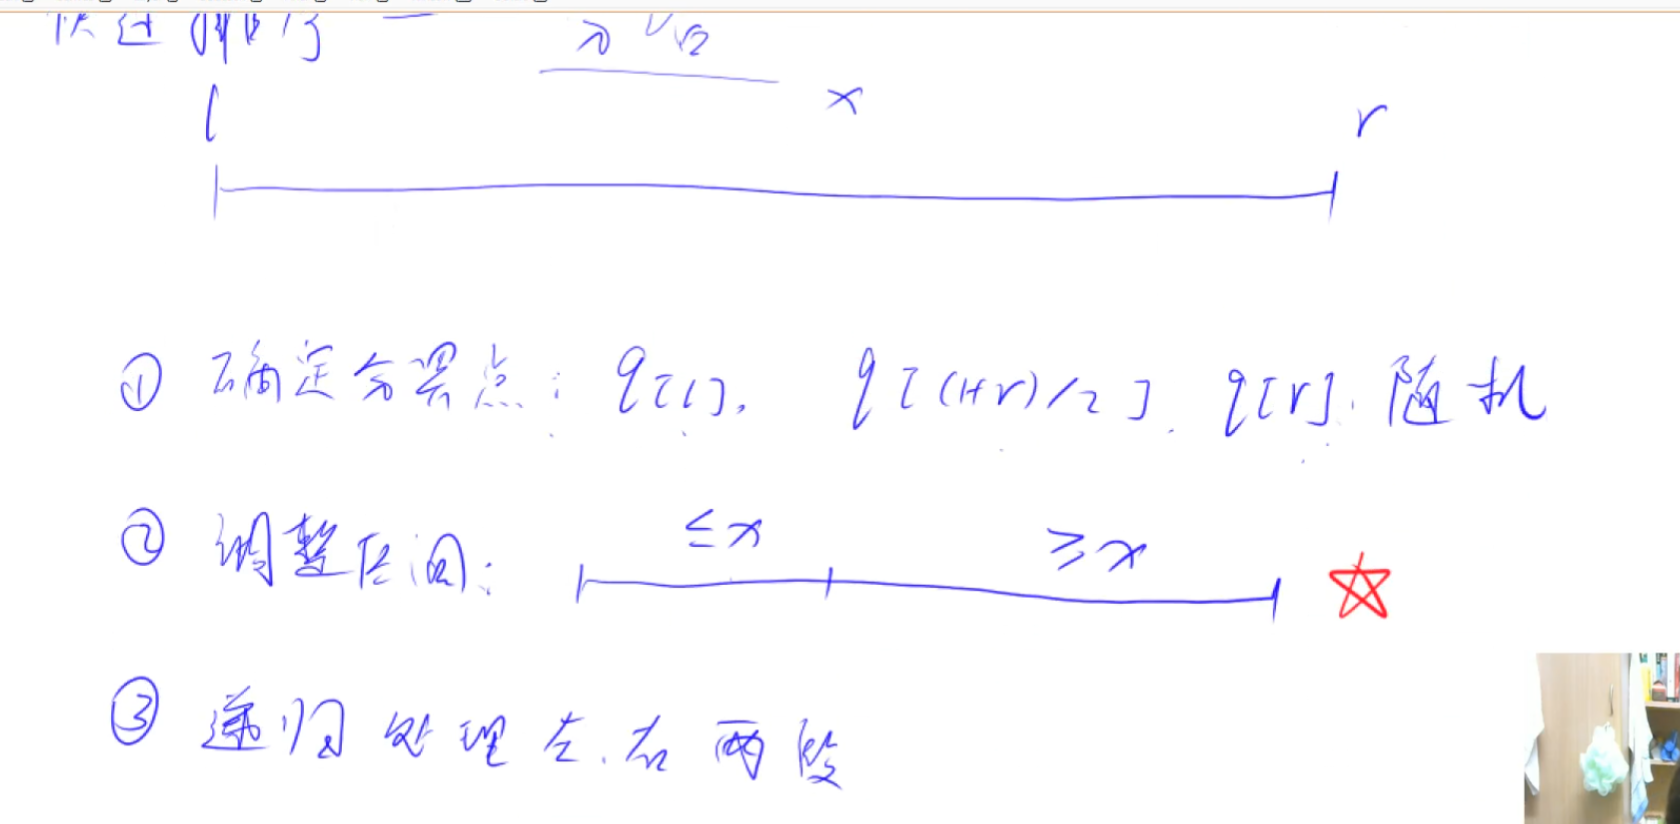 快速排序 — 分治
l x r
① 确定分界点: q[l], q[(l+r)/2], q[r], 随机
≤x ≥x
② 调整区间:
③ 递归处理左、右两段